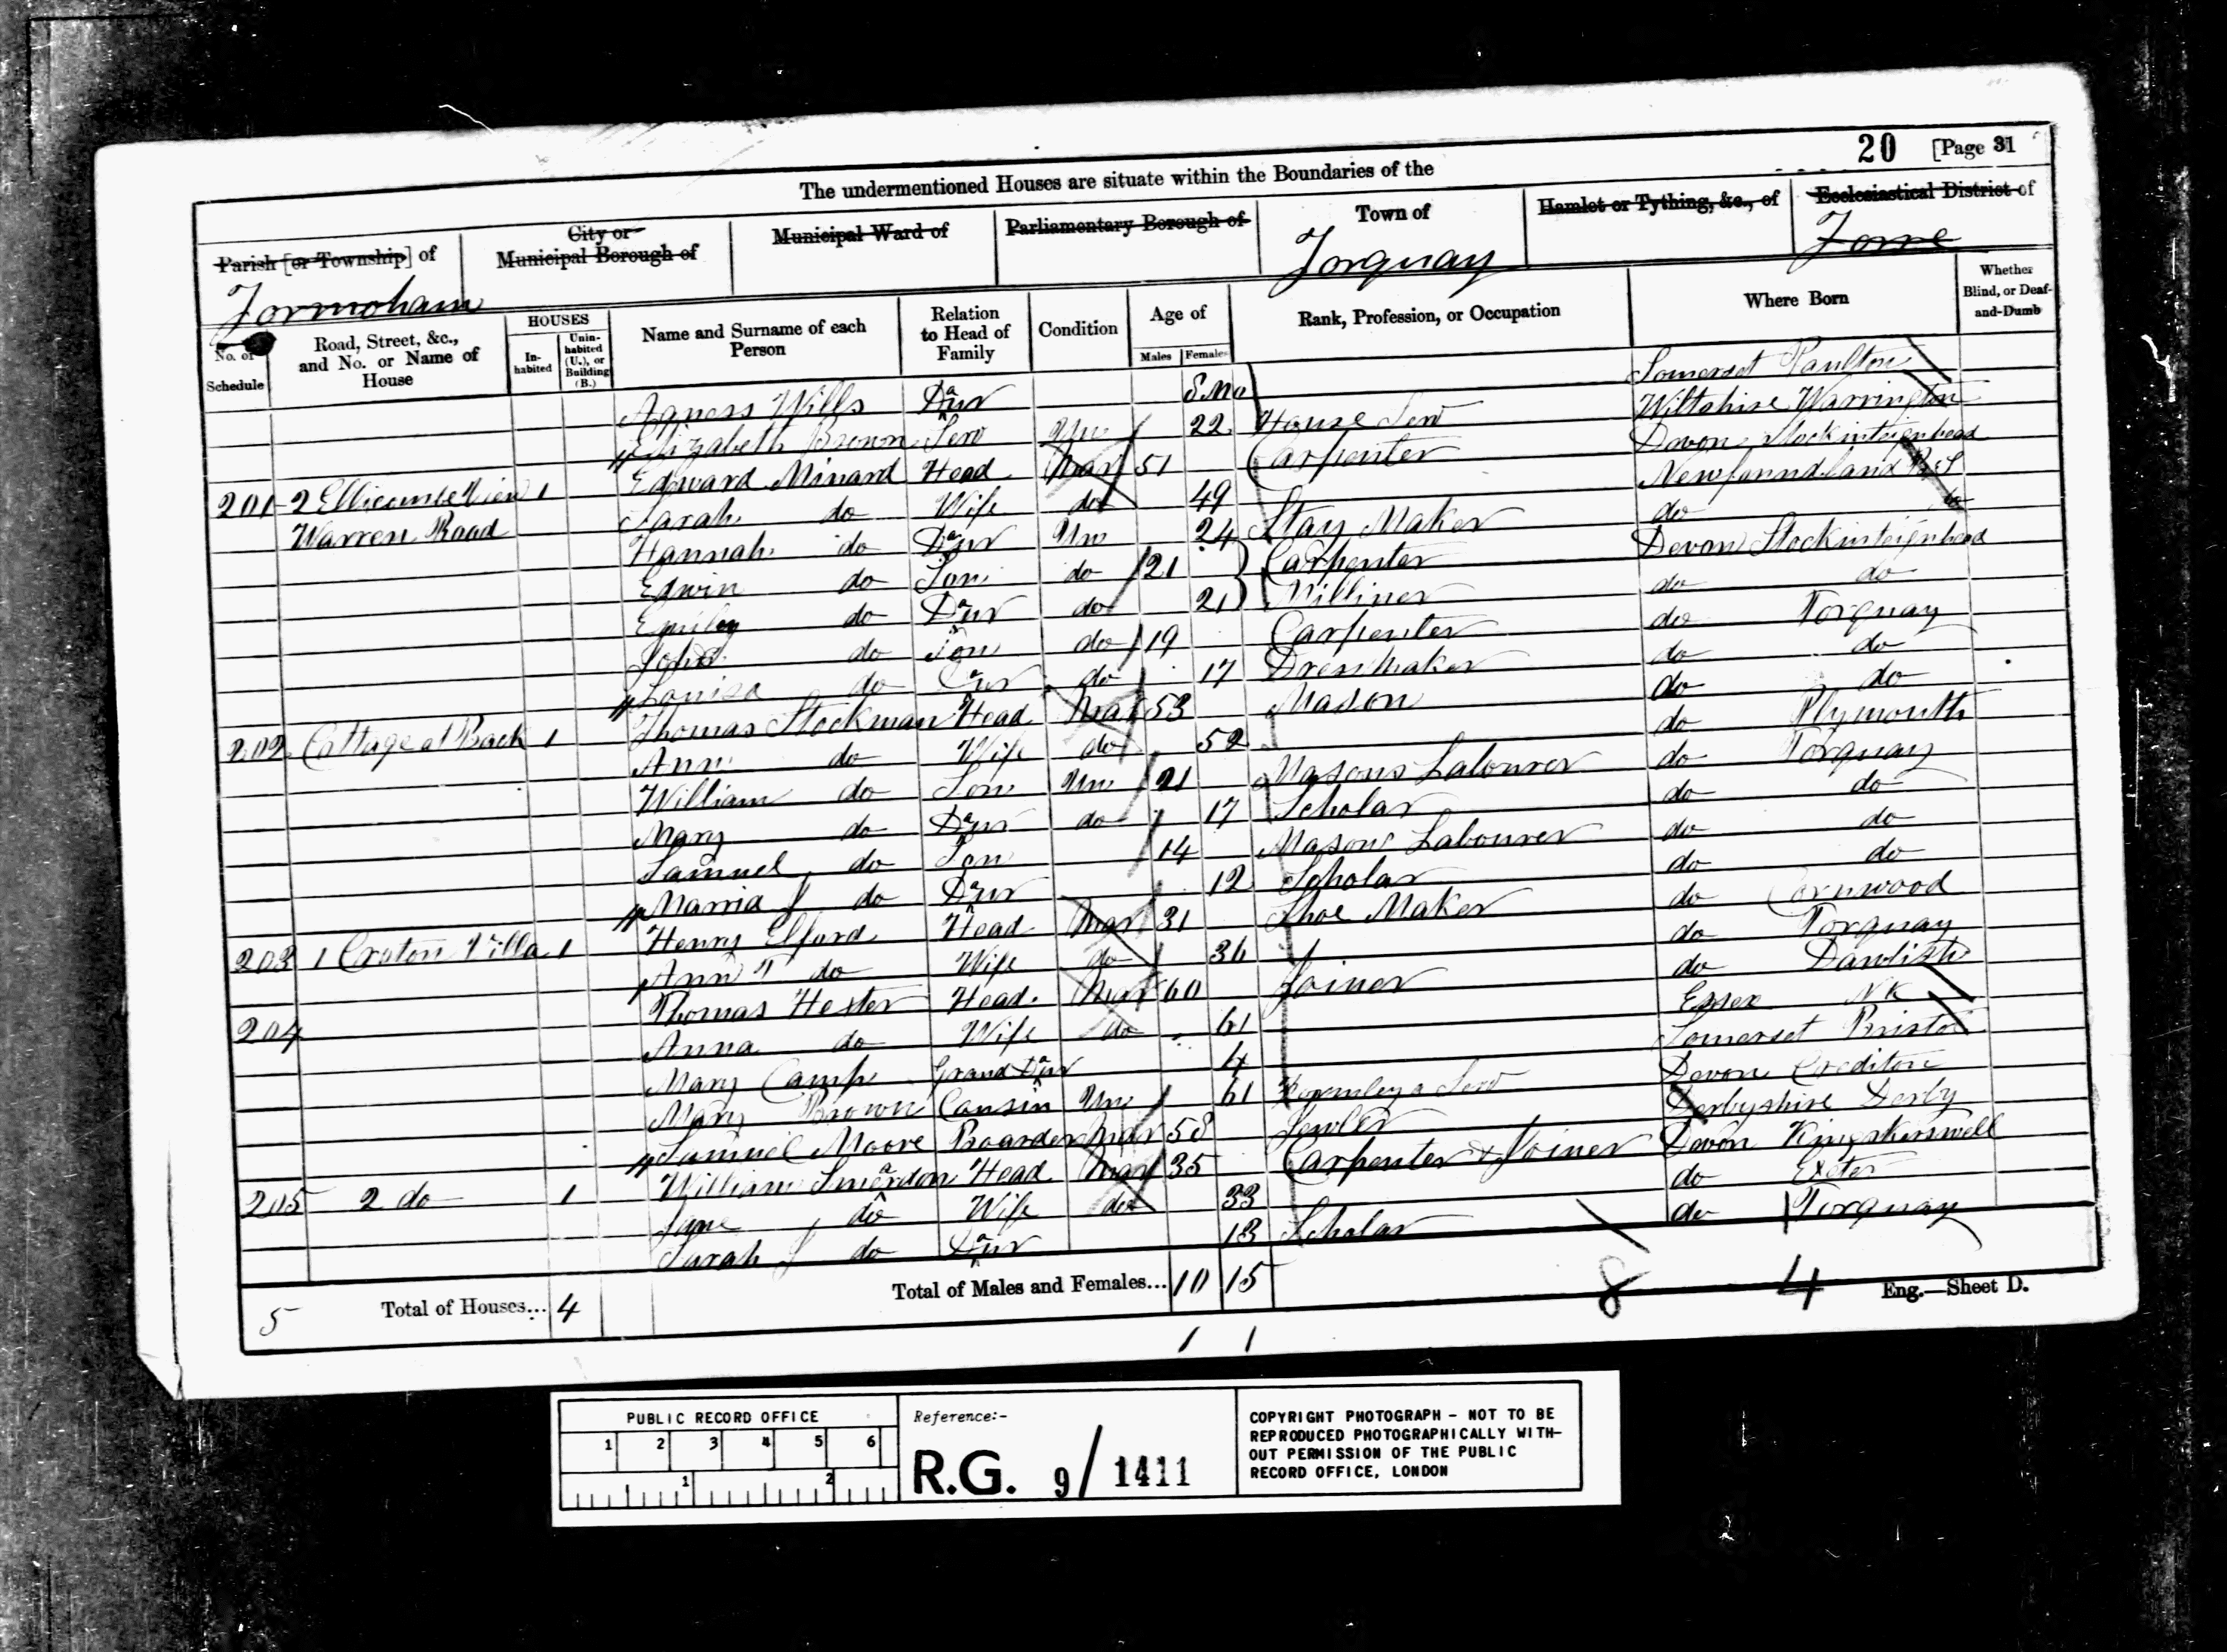 20 [Page 31
The undermentioned Houses are situate within the Boundaries of the
Parish [or Township] of City or Municipal Borough of Municipal Ward of Parliamentary Borough of Town of Hamlet or Tything, &c., of Ecclesiastical District of
Tormoham Torquay Torre
No. of Schedule Road, Street, &c., and No. or Name of House HOUSES Inhabited Uninhabited (U.), or Building (B.) Name and Surname of each Person Relation to Head of Family Condition Age of Males Females Rank, Profession, or Occupation Where Born Whether Blind, or Deaf-and-Dumb
Agness Wills Daur 8 Mo Somerset Paulton
Elizabeth Brown Serv Un 22 House Serv Wiltshire Warrington
201 2 Ellicombe View 1 Edward Minard Head Mar 51 Carpenter Devon Stockinteignhead
Warren Road Sarah do Wife do 49 Newfoundland B.S
Hannah do Daur Un 24 Stay Maker do do
Edwin do Son do 21 Carpenter Devon Stockinteignhead
Emiley do Daur do 21 Milliner do do
John do Son do 19 Carpenter do Torquay
Louisa do Daur do 17 Dressmaker do do
202 Cottage at Back 1 Thomas Stockman Head Mar 53 Mason do do
Ann do Wife do 52 do Plymouth
William do Son Un 21 Masons Labourer do Torquay
Mary do Daur do 17 Scholar do do
Samuel do Son 14 Masons Labourer do do
Marria J do Daur 12 Scholar do do
203 1 Croton Villa 1 Henry Elford Head Mar 31 Shoe Maker do Cornwood
Ann T do Wife do 36 do Torquay
204 Thomas Hester Head Mar 60 Joiner do Dawlish
Anna do Wife do 61 Essex NK
Mary Camp Grand Daur 4 Somerset Bristol
Mary Brown Cousin Un 61 Formley a Serv Devon Crediton
Samuel Moore Boarder Mar 58 Derbyshire Derby
205 2 do 1 William Smerdon Head Mar 35 Carpenter & Joiner Devon Kingskerswell
Jane do Wife do 33 do Exeter
Sarah J do Daur 13 Scholar do Torquay
5 Total of Houses... 4 Total of Males and Females... 10 15 8 4 Eng.—Sheet D.
PUBLIC RECORD OFFICE
1 2 3 4 5 6
1 2
Reference:-
R.G. 9/1411
COPYRIGHT PHOTOGRAPH - NOT TO BE
REPRODUCED PHOTOGRAPHICALLY WITH-
OUT PERMISSION OF THE PUBLIC
RECORD OFFICE, LONDON